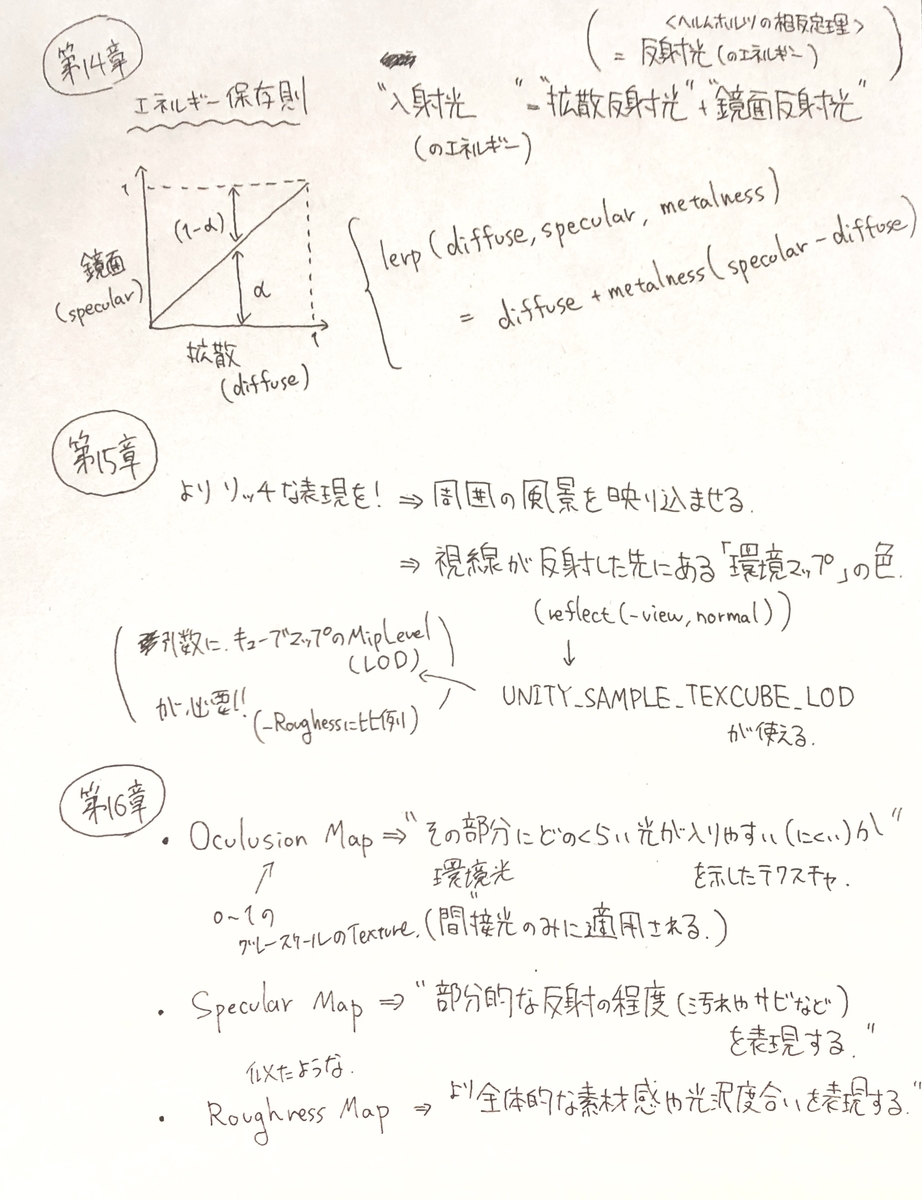 第14章
<ヘルムホルツの相反定理>
= 反射光(のエネルギー)
エネルギー保存則
"入射光" = "拡散反射光" + "鏡面反射光"
(のエネルギー)
1
(1-α)
α
鏡面
(specular)
1
拡散
(diffuse)
lerp(diffuse, specular, metalness)
= diffuse + metalness(specular - diffuse)
第15章
よりリッチな表現を! ⇒ 周囲の風景を映り込ませる.
⇒ 視線が反射した先にある「環境マップ」の色.
(reflect(-view, normal))
↓
UNITY_SAMPLE_TEXCUBE_LOD
が使える.
引数に、キューブマップのMipLevel
(LOD)
が必要!!
(-Roughessに比例)
第16章
・ Oculusion Map ⇒ "その部分にどのくらい光が入りやすい(にくい)か"
環境光
を示したテクスチャ.
0~1の
グレースケールのTexture.
(間接光のみに適用される.)
・ Specular Map ⇒ "部分的な反射の程度(汚れやサビなど)
を表現する."
似たような.
・ Roughness Map ⇒ "より全体的な素材感や光沢度合いを表現する."